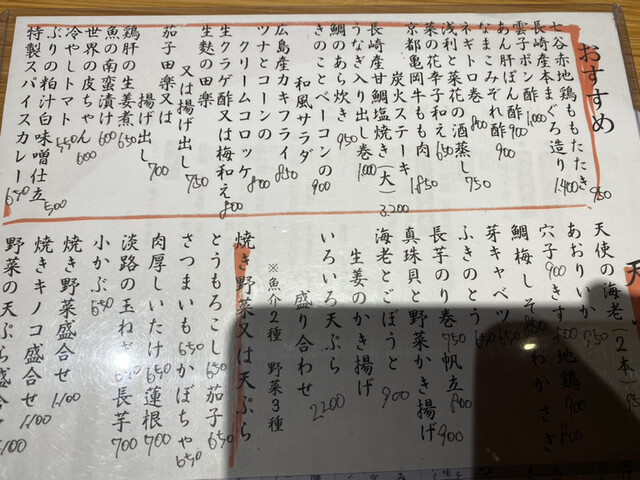 おすすめ
七谷赤地鶏ももたたき 950
長崎産本まぐろ造り 1400
雲子ポン酢 1000
あん肝ぽん酢 900
なまこみぞれ酢 900
ネギトロ巻 800
浅利と菜花の酒蒸し 750
菜の花辛子和え 650
京都亀岡牛もも肉
炭火ステーキ 1850
長崎産甘鯛塩焼き(大) 3.200
うなぎ入り出し巻 1000
鯛のあら炊き 950
きのことベーコンの
和風サラダ 900
広島産カキフライ 850
ツナとコーンの
クリームコロッケ 800
生クラゲ酢又は梅和え 800
生麩の田楽
又は揚げ出し 750
茄子田楽又は
揚げ出し 700
鶏肝の生姜煮 650
魚の南蛮漬け 600
世界の皮ちゃん 600
冷やしトマト 550
ぶりの粕汁白味噌仕立 500
特製スパイスカレー 650
天
天使の海老(2本)
あおりいか 950
穴子 900 きす 地鶏 900
鯛梅しそ わかさぎ 800
芽キャベツ
ふきのとう
長芋のり巻 750 帆立 800
真珠貝と野菜かき揚げ 900
海老とごぼうと
生姜のかき揚げ 900
いろいろ天ぷら
盛り合わせ 2200
※魚介2種 野菜3種
焼き野菜又は天ぷら
とうもろこし 650 茄子 650
さつまいも 650 かぼちゃ 650
肉厚しいたけ 650 蓮根 700
淡路の玉ねぎ 長芋 700
小かぶ 650
焼き野菜盛合せ 1100
焼きキノコ盛合せ 1100
野菜の天ぷら盛合せ 1100